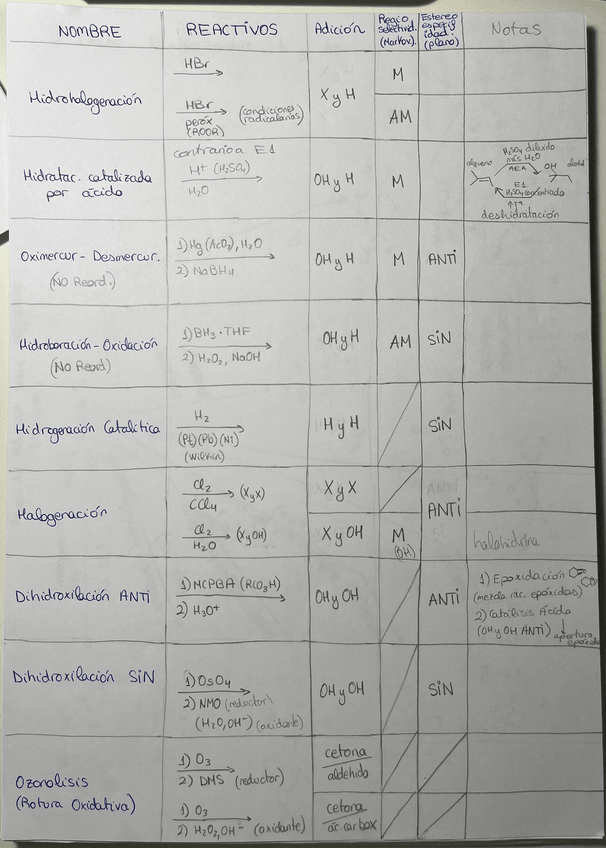 NOMBRE
REACTIVOS
Adición
Regio
selectivid.
(Markov.)
Estereo
especifi
idad.
(plano)
Notas
Hidrohalogenación
HBr
HBr
peróx
(ROOR)
(condiciones
radicalarias)
X y H
M
AM
Hidratac. catalizada
por ácido
contrario a E1
H+ (H₂SO₄)
H₂O
OH y H
M
alqueno
H₂SO₄ diluido
más H₂O
AEA
OH
alcohol
E1
H₂SO₄ concentrado
↑Tª
deshidratación
Oximercur - Desmercur.
(NO Reord.)
1) Hg(AcO)₂, H₂O
2) NaBH₄
OH y H
M
ANTi
Hidroboración - Oxidación
(No Reord)
1) BH₃·THF
2) H₂O₂, NaOH
OH y H
AM
SiN
Hidrogeración Catalítica
H₂
(Pt)(Pb)(Ni)
H y H
SiN
Halogenación
Cl₂
CCl₄
(XyX)
X y X
ANTi
Cl₂
H₂O
(XyOH)
X y OH
M
(OH)
halohidrina
Dihidroxilación ANTi
1) MCPBA (RCO₃H)
2) H₃O+
OH y OH
ANTi
1) Epoxidación
(mezcla rac. epóxidos)
2) Catálisis Ácida
(OH y OH ANTi)
apertura
epóxido
Dihidroxilación SiN
1) OsO₄
2) NMO (reductor)
(H₂O, OH⁻) (oxidante)
OH y OH
SiN
Ozonolisis
(Rotura Oxidativa)
1) O₃
2) DMS (reductor)
cetona
aldehído
1) O₃
2) H₂O₂, OH⁻ (oxidante)
cetona
ác. carbox